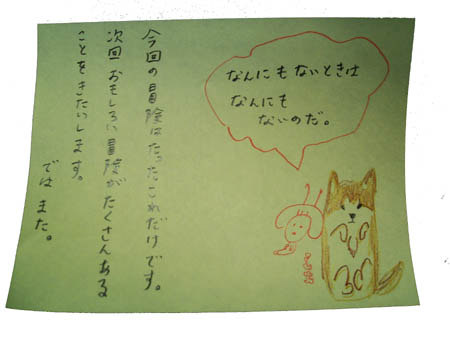 なんにもないときは
なんにも
ないのだ。
今回の冒険はたったこれだけです。
次回おもしろい冒険がたくさんある
ことをきたいします。
ではまた。